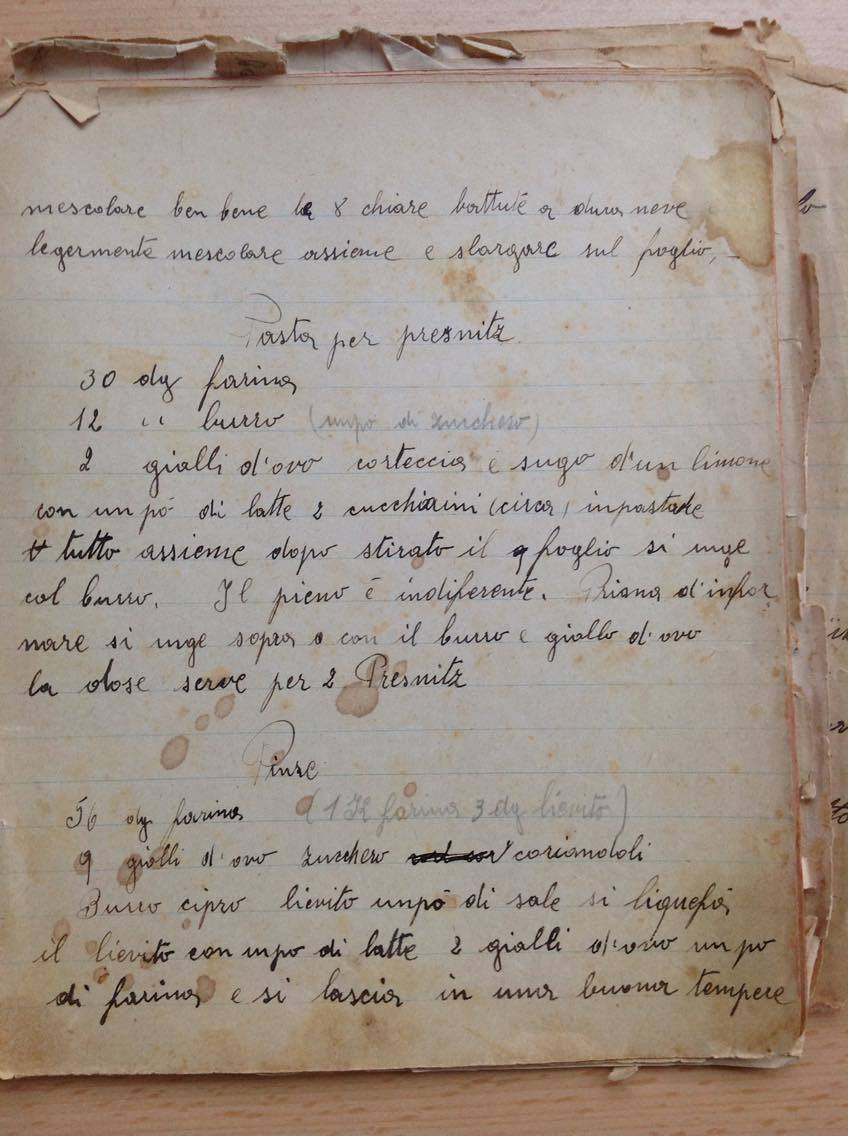 mescolare ben bene le 8 chiare battute a dura neve
legermente mescolare assieme e slargare sul foglio,
Pasta per presnitz
30 dg farina
12 " burro (unpo di zucchero)
2 gialli d'ovo corteccia e sugo d'un limone
con un pó di latte 2 cucchiaini (circa) inpastare
tutto assieme dopo stirato il foglio si unge
col burro. Il pieno é indiferente. Prima d'infor
nare si unge sopra o con il burro e giallo d'ovo
la dose serve per 2 Presnitz
Pinze
56 dg farina (1 K farina 3 dg lievito)
9 gialli d'ovo zucchero coriandoli
Burro cipro lievito unpó di sale si liquefa
il lievito con unpo di latte 2 gialli d'ovo un po
di farina e si lascia in una buona tempere